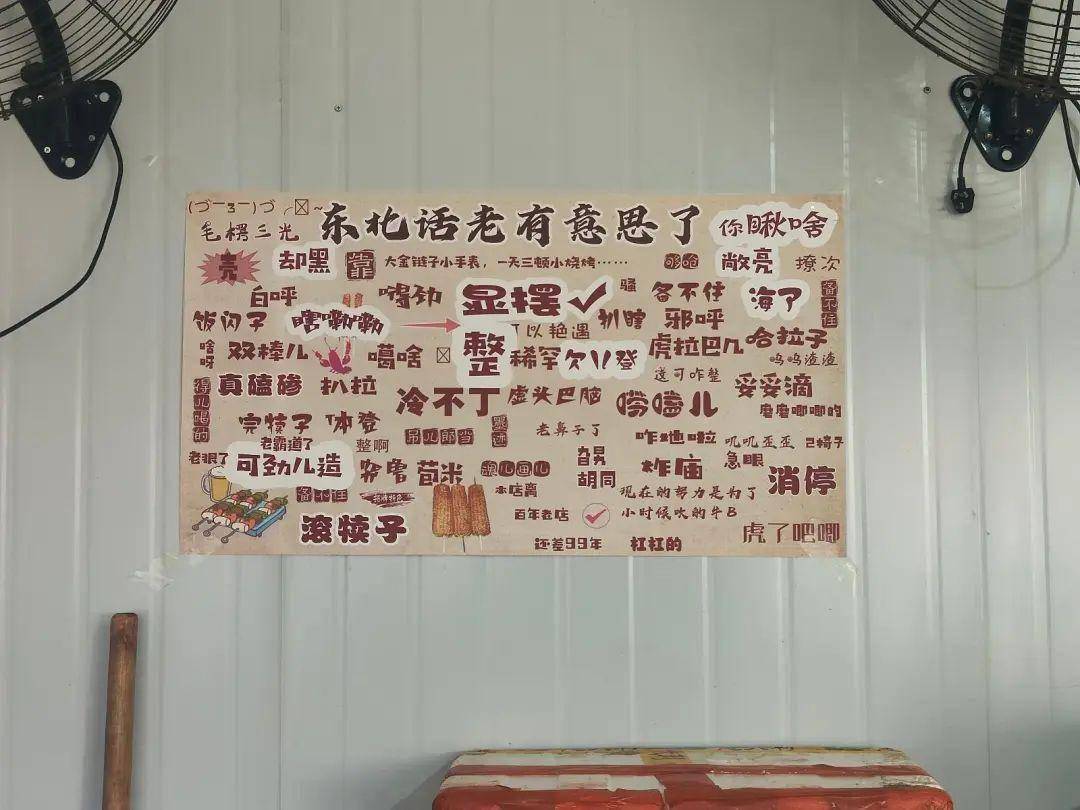 东北话老有意思了
你瞅啥
毛楞三光
却黑
大金链子小手表，一天三顿小烧烤……
够呛
敞亮
撩次
白呼
嘚劲
显摆✓
骚
各不住
海了
备不住
饭闪子
瞎嘞嘞
可以艳遇
扒瞎
邪呼
哈拉子
啥呀
双棒儿
噶啥
整
稀罕
欠儿登
虎拉巴几
呜呜渣渣
这可咋整
得儿喝的
真磕碜
扒拉
冷不丁
虚头巴脑
唠嗑儿
妥妥滴
磨磨唧唧的
完犊子
体登
吊儿郎当
老鼻子了
咋地啦
叽叽歪歪
2椅子
老霸道了
整啊
老狠了
可劲儿造
苞米
胡同
急眼
消停
备不住
本店离
现在的努力是为了
滚犊子
百年老店
小时候吹的牛B
还差99年
杠杠的
虎了吧唧